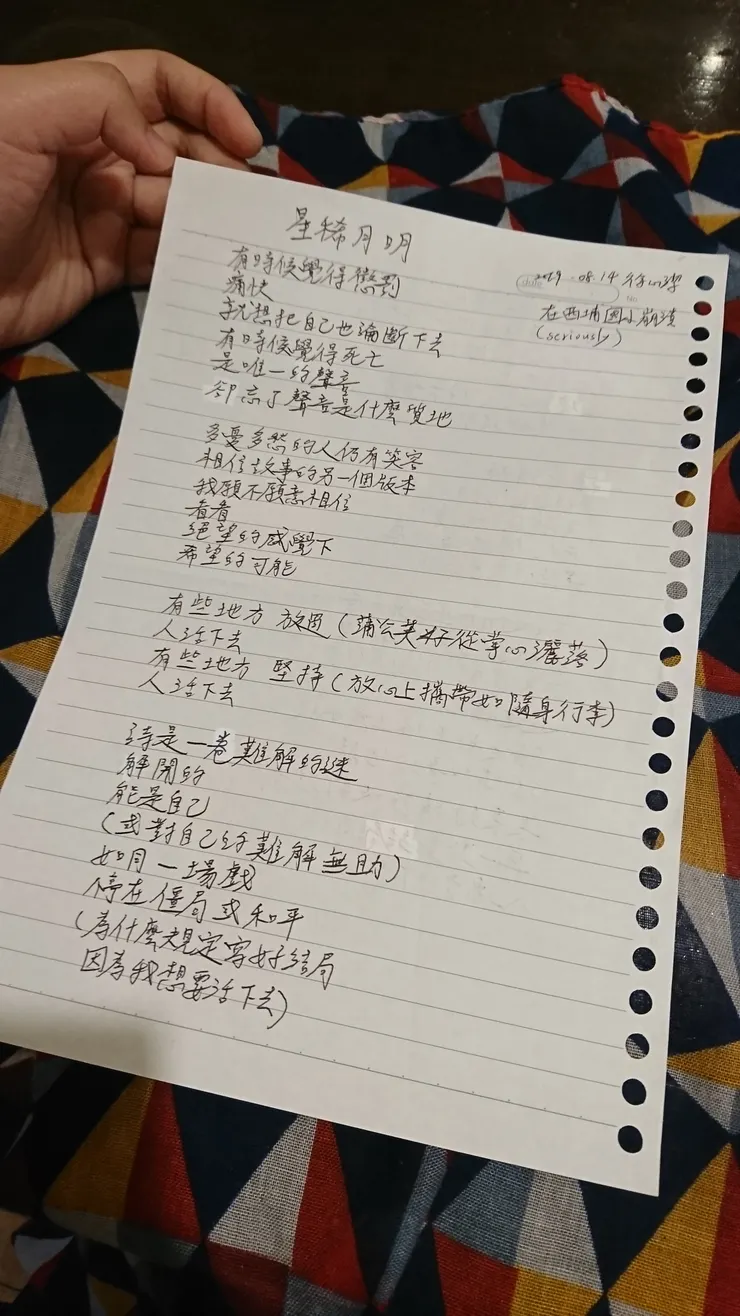 星稀月明
2019.08.14 徐心潔
date
No
在西埔國小崩潰
(seriously)
有時候覺得懲罰
痛快
就想把自己也論斷下去
有時候覺得死亡
是唯一的聲音
卻忘了聲音是什麼質地
多憂多愁的人仍有笑容
相信故事的另一個版本
我願不願意相信
看看
絕望的感覺下
希望的可能
有些地方 放過(蒲公英籽從掌心灑落)
人活下去
有些地方 堅持(放心上攜帶如隨身行李)
人活下去
詩是一卷難解的迷
解開的
能是自己
(或對自己的難解無助)
如月一場戲
停在僵局或和平
(為什麼規定寫好結局
因為我想要活下去)